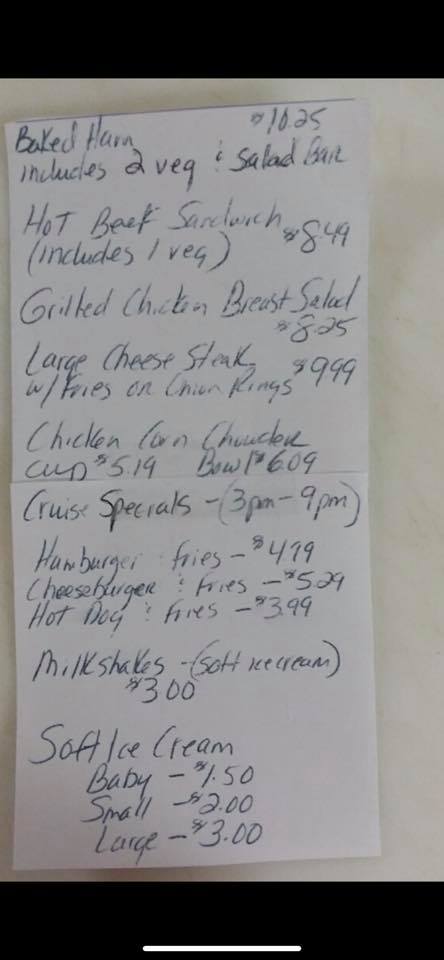 Baked Ham $10.25
includes 2 veg & Salad Bar
Hot Beef Sandwich $8.49
(includes 1 veg)
Grilled Chicken Breast Salad
$8.25
Large Cheese Steak $9.99
w/ Fries or Onion Rings
Chicken Corn Chowder
cup $5.19 Bowl $6.09
Cruise Specials - (3pm - 9pm)
Hamburger Fries - $4.79
Cheeseburger & Fries - $5.29
Hot Dog & Fries - $3.99
Milkshakes - (soft ice cream)
$3.00
Soft Ice Cream
Baby - $1.50
Small - $2.00
Large - $3.00